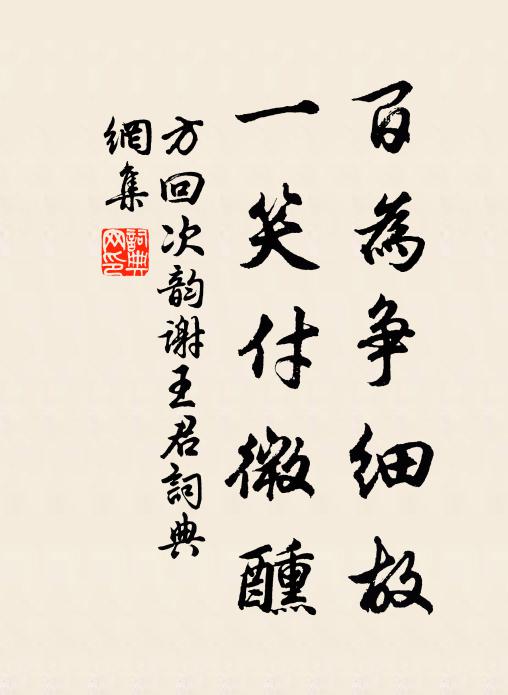 百為争細故
一笑付微醺
方回次韵谢王君詞典
網集
詞典網印